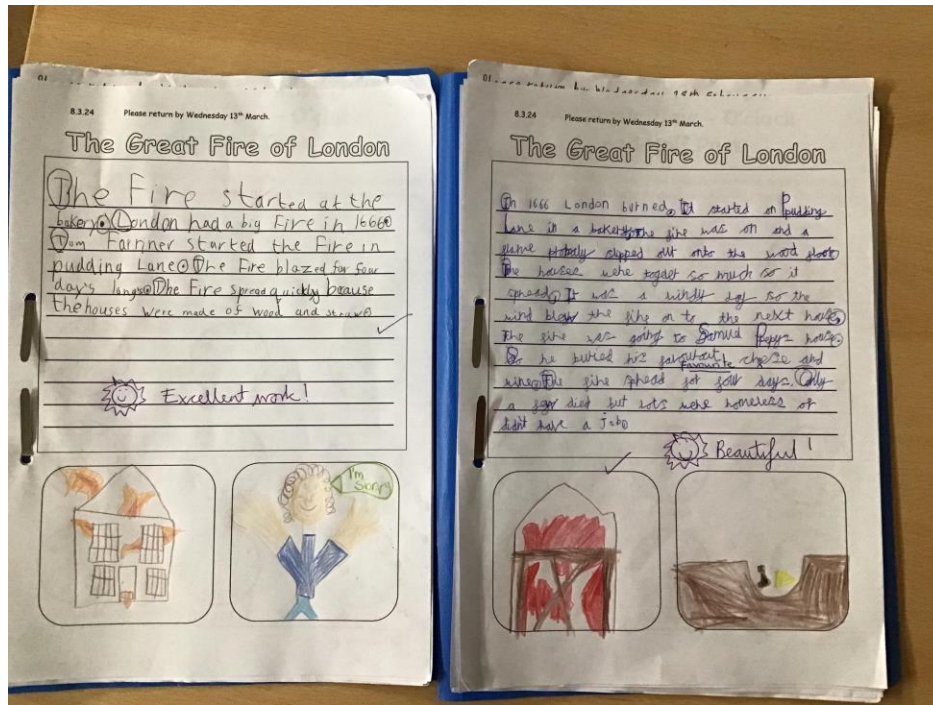 8.3.24 Please return by Wednesday 13th March.
The Great Fire of London
The Fire started at the
bakery. London had a big Fire in 1666.
Tom Farnner started the Fire in
pudding Lane. The Fire blazed for four
day's long. The Fire spread quickly beause
the houses were made of wood and straw.
Excellent work!
I'm
Sorry
8.3.24 Please return by Wednesday 13th March.
The Great Fire of London
In 1666 London burned. It started on Pudding
Lane in a bakery. The fire was on and a
flame slipped out onto the wood floor.
The houses wehe so much so it
sphead. It was a windy day so the
wind blew the fihe on to the next house.
The fihe was going to Samul Pepys house.
So he buried his favourite cheese and
wine. The fihe sphead for four days. Only
a few died but lots wehe homeless or
didn't have a job.
Beautiful!